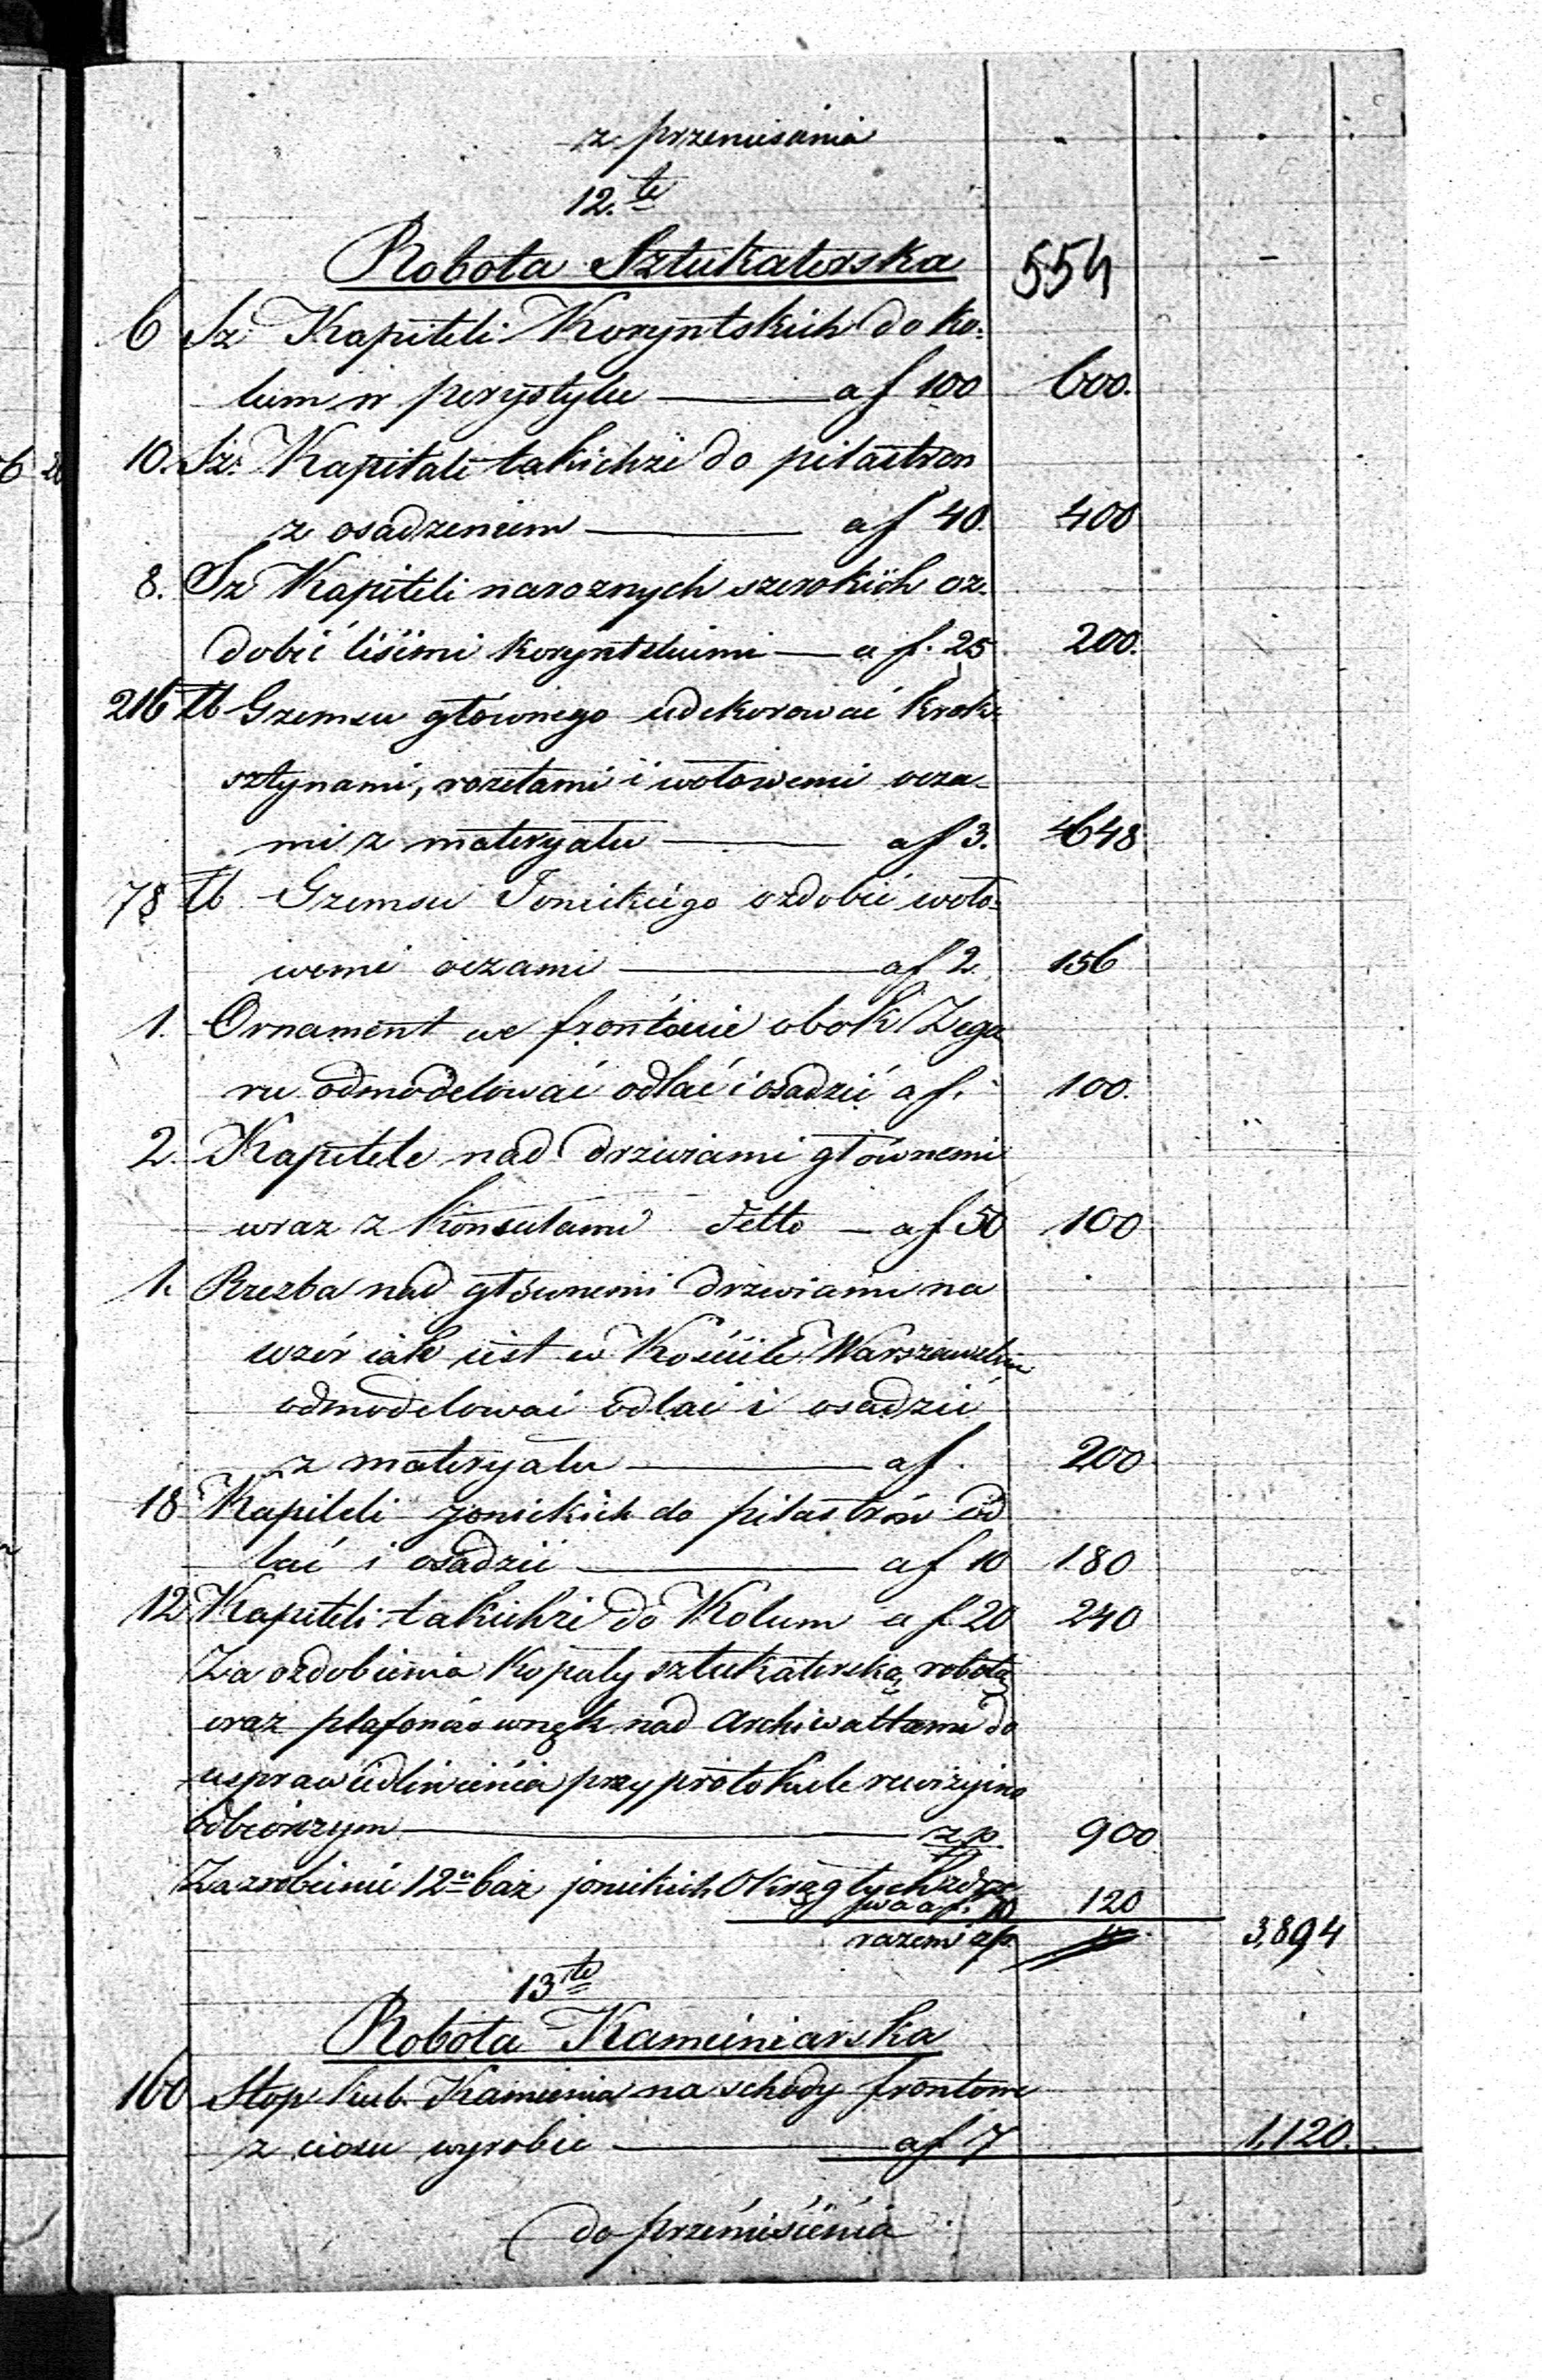 z przeniesienia
12.te
Robota Sztukaterska 554 -
6 Sz Kapiteli Koryntskich do ko-
lum w perystylu — a f 100 600.
10. Sz. Kapiteli takichże do pilastrów
z osadzeniem — a f 40. 400
8. Sz Kapiteli naroznych szerokich oz-
dobić liścimi koryntskiemi — a f. 25 200.
216 Łb Gzemsu głównego udekorować krok-
sztynami, rozetami i wołowemi ocza-
mi z materyału — a f 3. 648
78 Łb Gzemsu Jonickiego ozdobić woło-
wemi oczami — a f 2. 156
1. Ornament we frontonie obok Zega
ru odmodelować odlać i osadzić a f. 100.
2. Kapitele nad drzwiami głównemi
wraz z Konsulami detto — a f 50 100
1. Rzezba nad głównemi drzwiami na
wzór iak iest w Kościele Warszawskim
odmodelować odlać i osadzić
z materyału — a f. 200
18 Kapiteli jonickich do pilastrów od
lać i osadzić — a f 10 180
12 Kapiteli takichże do Kolum a f 20 240
Za ozdobienia Kopuły sztukaterską robotą
oraz plafonów wnęk nad Archiwaltami do
usprawiedliwienia przy protokule rewizyino
odbiorczym — zp. 900
Za zrobienie 12u baz jonickich Okrągłych
a f. 10 120
razem zp. 3,894
13te
Robota Kamieniarska
160 Stop kub. Kamienia na schody frontowe
z ciosu wyrobić — a f 7 1,120.
do przeniesienia
6 20